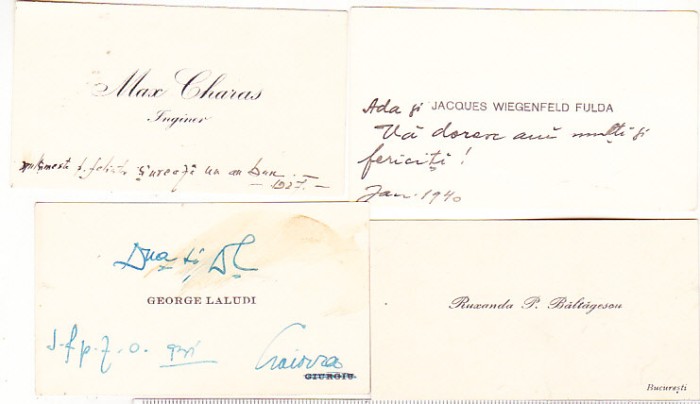 Max Charas
Inginer
mulțumește p. felicitări și urează un an bun
Ada și JACQUES WIEGENFELD FULDA
Vă doresc ani mulți și
fericiți!
Jan. 1940
Dna și Dl
GEORGE LALUDI
Craiova
GIURGIU
Ruxanda P. Băltăgescu
București